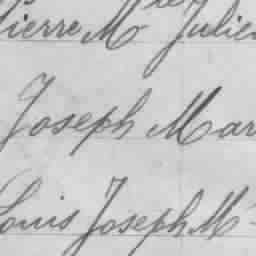 Pierre Mle Julien
Joseph Mar
Louis Joseph M